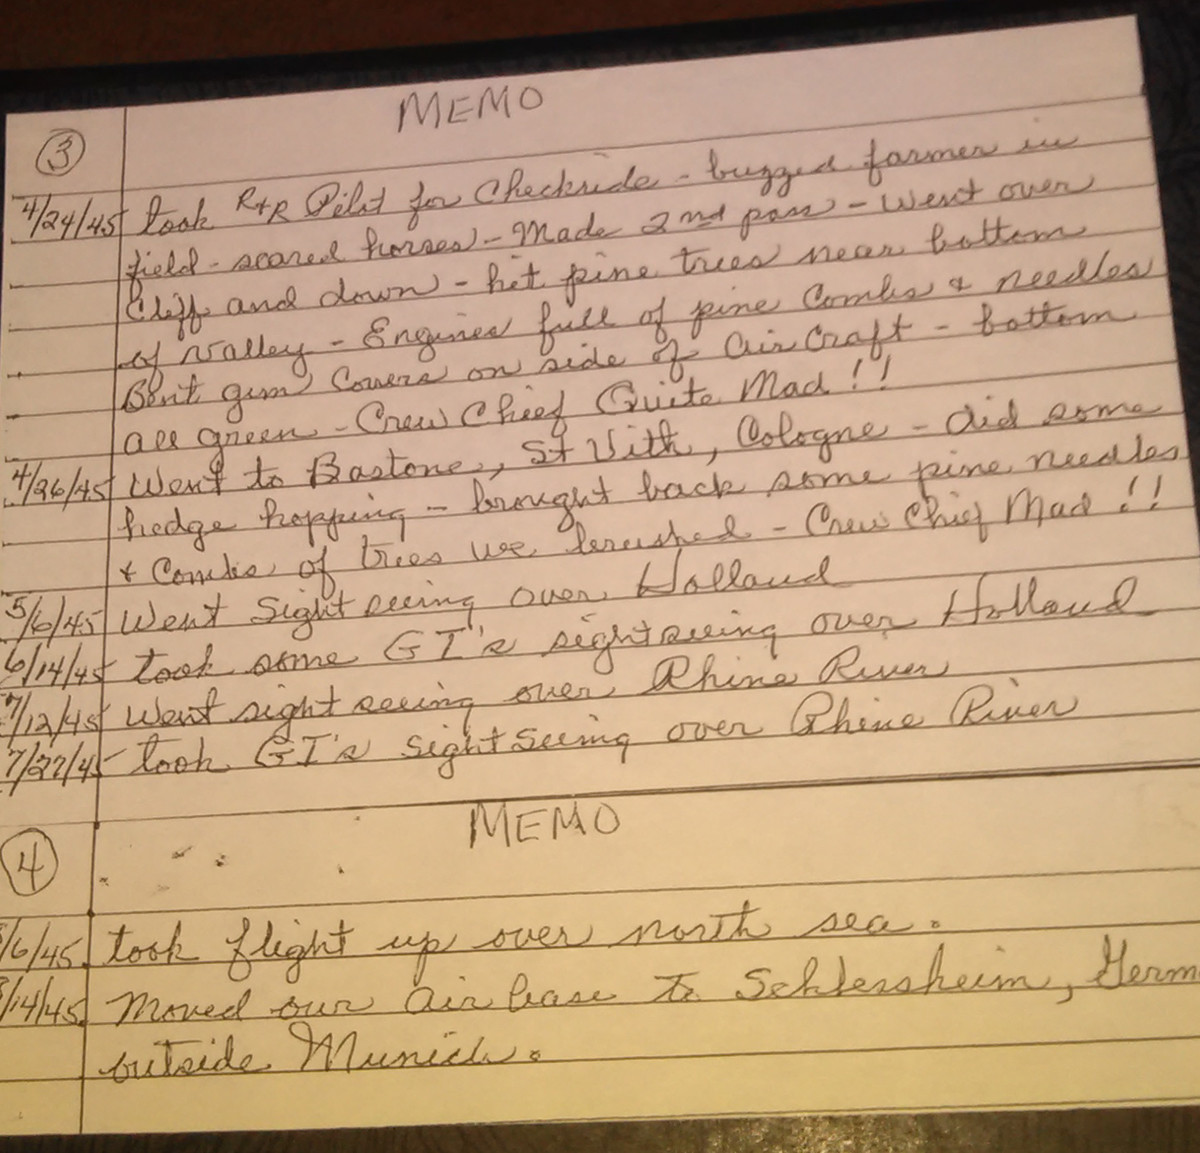 MEMO
3
4/24/45 took R+R Pilot for Checkride - buzzed farmer in
field - scared horses - Made 2nd pass - Went over
Cliff and down - hit pine trees near bottom
of valley - Engines full of pine Combs + needles
Bent gun Covers on side of Air Craft - bottom
all green - Crew Chief Quite Mad!!
4/26/45 Went to Bastone, St Vith, Cologne - did some
hedge hopping - brought back some pine needles
+ Combs of trees we brushed - Crew Chief Mad!!
5/6/45 Went Sight seeing over Holland
6/14/45 took some GI's sightseeing over Holland
7/12/45 Went sight seeing over Rhine River
7/27/45 took GI's Sight Seeing over Rhine River
MEMO
4
/6/45. took flight up over north sea.
/14/45. Moved our Air base to Schlersheim, Germ
outside Munich.